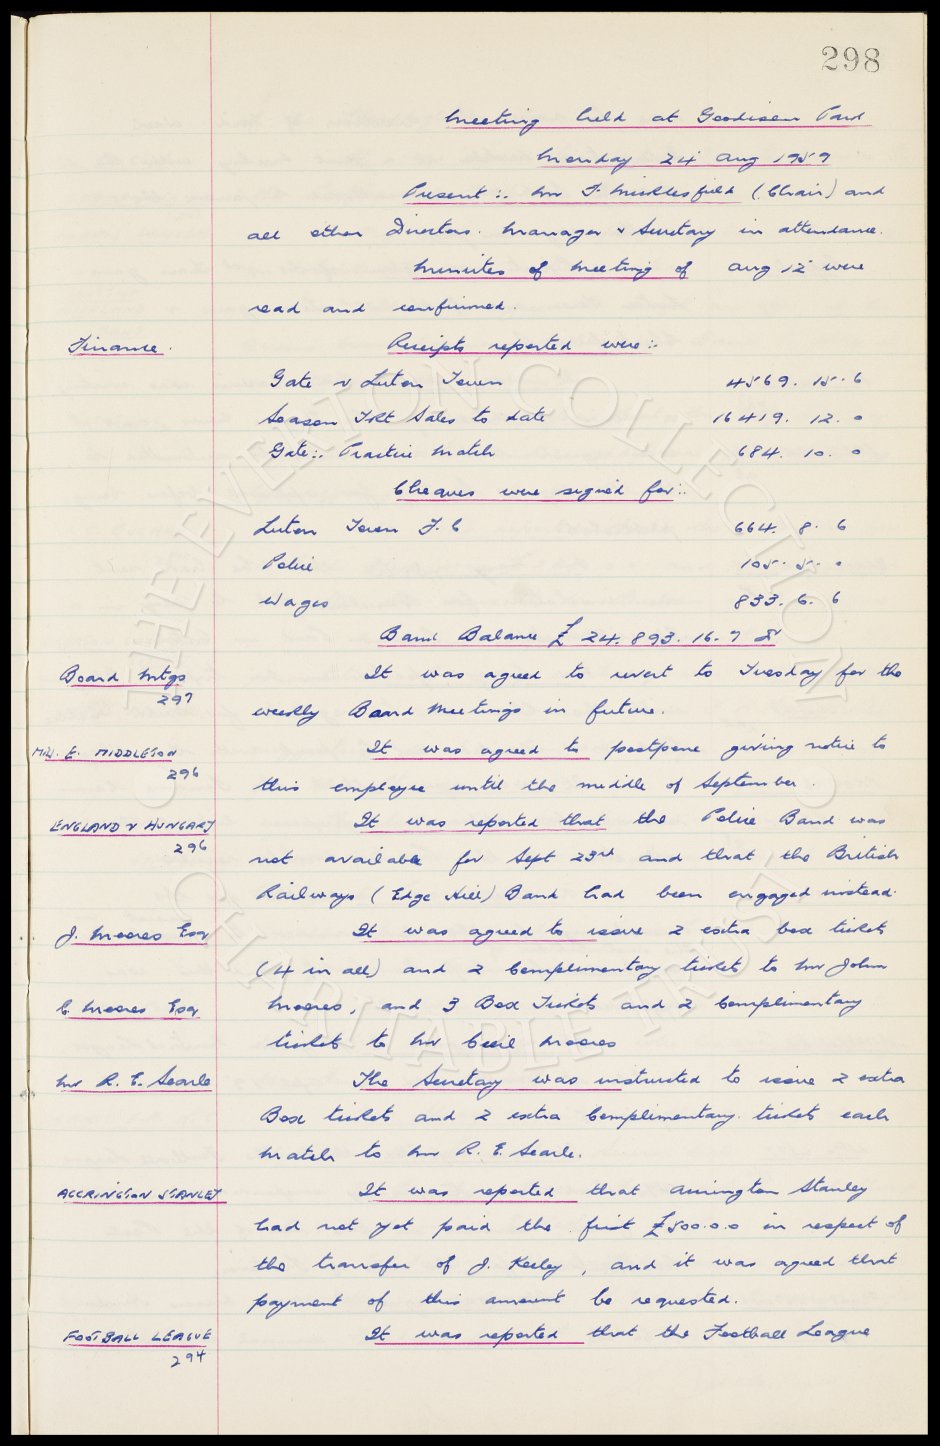 298
Meeting held at Goodison Park
Monday 24 Aug 1959
Present :- Mr F. Micklesfield (Chair) and
all other Directors. Manager & Secretary in attendance.
Minutes of Meeting of Aug 12 were
read and confirmed.
Finance. Receipts reported were :-
Gate v Luton Town 4569. 15. 6
Season Tkt Sales to date 16419. 12. 0
Gate :- Practice Match 684. 10. 0
Cheques were signed for :-
Luton Town F.C 664. 8. 6
Police 105. 5. 0
Wages 833. 6. 6
Bank Balance £24.893.16.7
Board Mtgs It was agreed to revert to Tuesday for the
297
weekly Board Meetings in future.
E. MIDDLETON It was agreed to postpone giving notice to
296
this employee until the middle of September.
ENGLAND v HUNGARY It was reported that the Police Band was
296
not available for Sept 23rd and that the British
Railways (Edge Hill) Band had been engaged instead.
J. Moores Esq It was agreed to issue 2 extra box tickets
(4 in all) and 2 Complimentary tickets to Mr John
C. Moores Esq Moores, and 3 Box Tickets and 2 Complimentary
tickets to Mr Cecil Moores
Mr R. E. Searle The Secretary was instructed to issue 2 extra
Box tickets and 2 extra Complimentary tickets each
Match to Mr R. E. Searle.
ACCRINGTON STANLEY It was reported that Accrington Stanley
had not yet paid the first £500.0.0 in respect of
the transfer of J. Keeley, and it was agreed that
payment of this amount be requested.
FOOTBALL LEAGUE It was reported that the Football League
294
THE EVERTON COLLECTION CHARITABLE TRUST